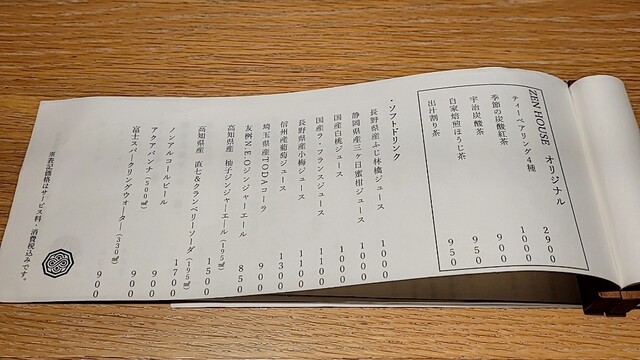 ZEN HOUSE オリジナル
ティーペアリング4種 2900
季節の炭酸紅茶 1000
宇治炭酸茶 950
自家焙煎ほうじ茶 900
出汁割り茶 950
・ソフトドリンク
長野県産ふじ林檎ジュース 1000
静岡県産三ヶ日蜜柑ジュース 1000
国産白桃ジュース 1000
国産ラ・フランスジュース 1100
長野県産小梅ジュース 1100
信州産葡萄ジュース 1300
埼玉県産TODAコーラ 900
友桝NEOジンジャーエール 850
高知県産 柚子ジンジャーエール(195㎖) 1500
高知県産 直七&クランベリーソーダ(195㎖) 1700
ノンアルコールビール 900
アクアパンナ(500㎖) 900
富士スパークリングウォーター(330㎖) 900
※表記価格はサービス料・消費税込みです。